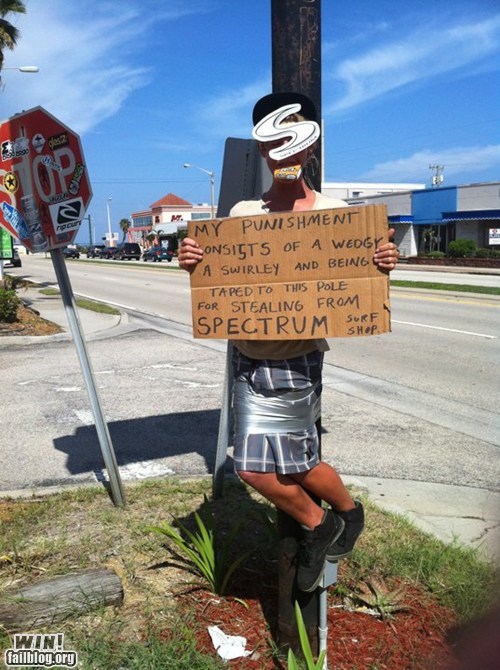 MY PUNISHMENT
ONSISTS OF A WEDGY
A SWIRLEY AND BEING
TAPED TO THIS POLE
FOR STEALING FROM
SPECTRUM SURF
SHOP
TOP
rip curl
WIN!
failblog.org